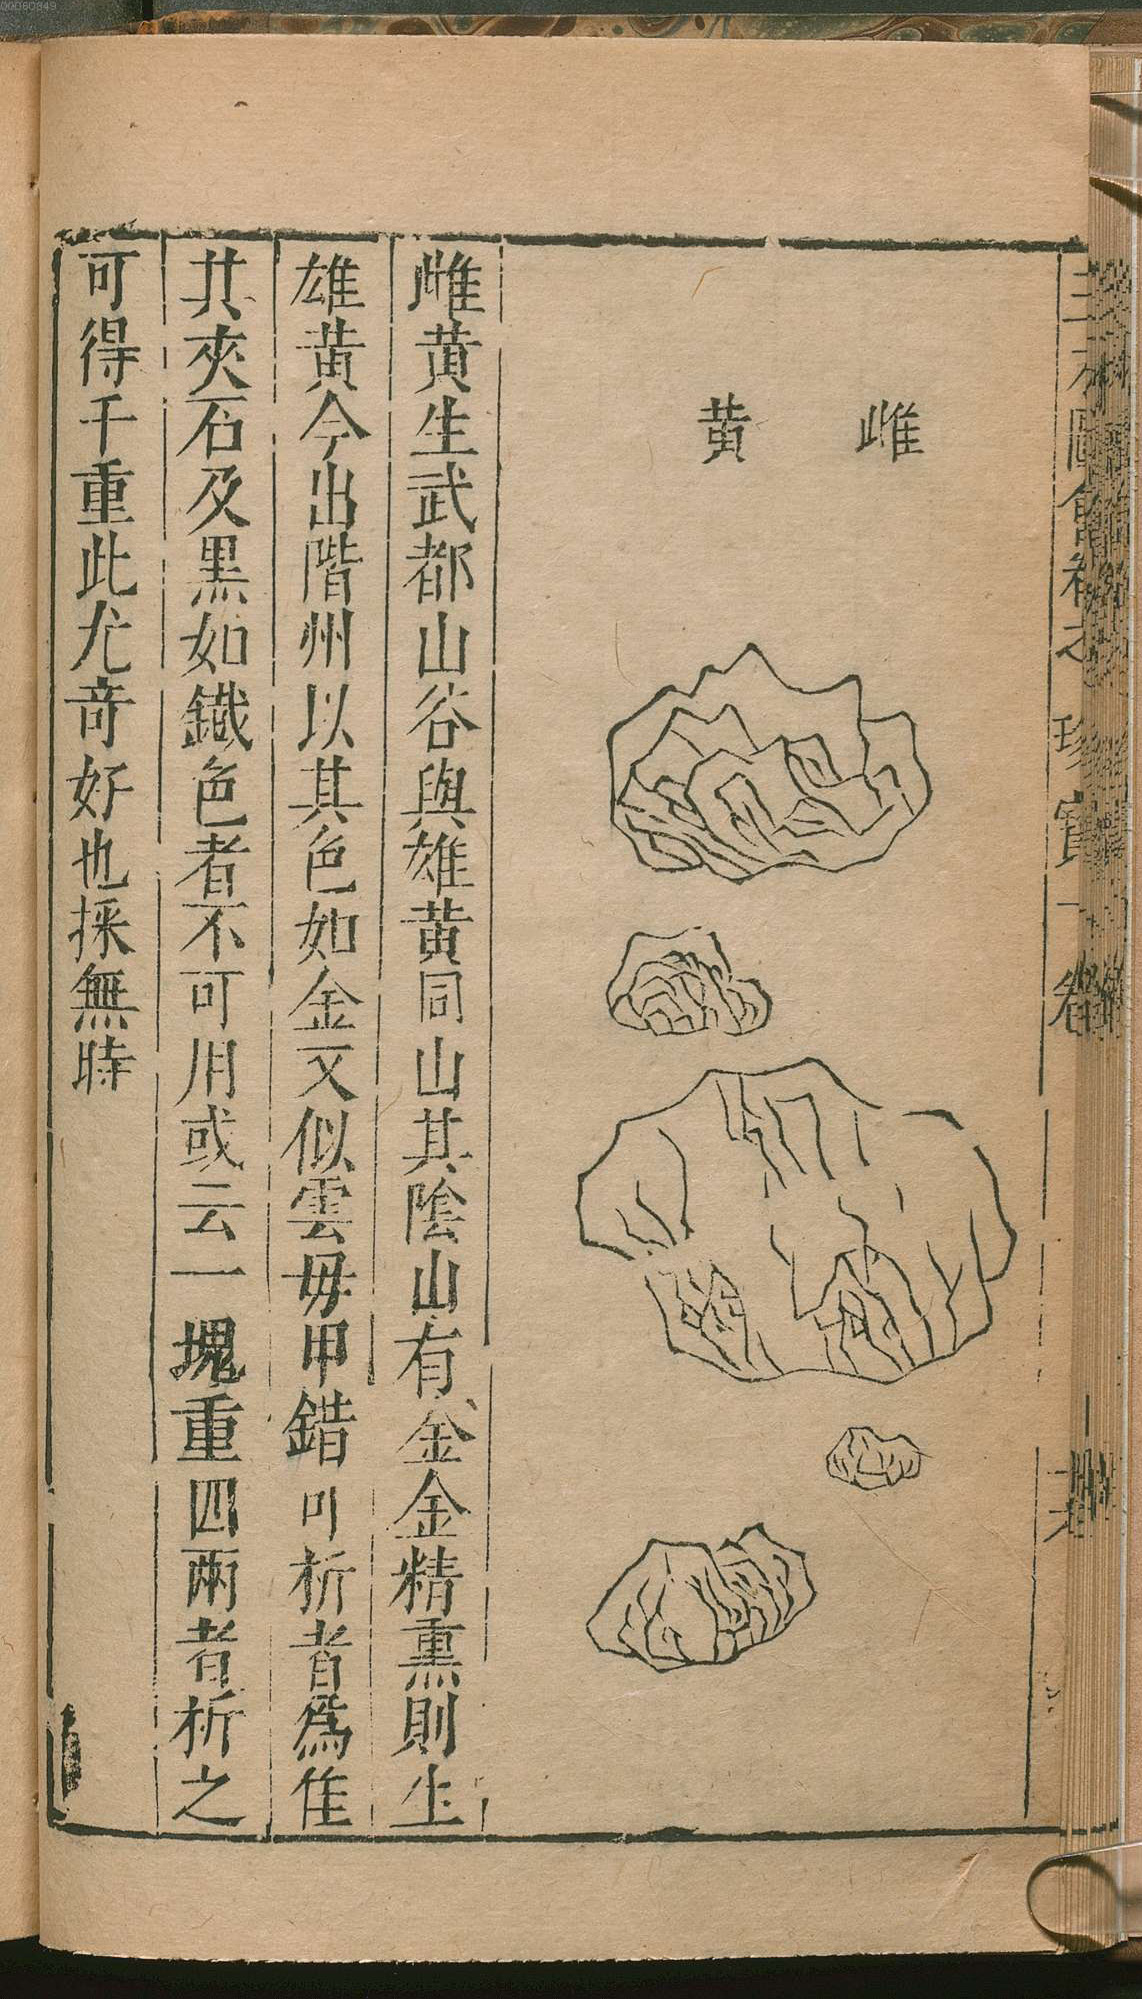 三才圖會卷之 珍寶一卷
雌黃
雌黃生武都山谷與雄黃同山其陰山有金金精熏則生
雄黃今出階州以其色如金又似雲毋甲錯可析者爲隹
其夾石及黑如鐵色者不可用或云一塊重四兩者析之
可得千重此尤竒好也採無時
00060849